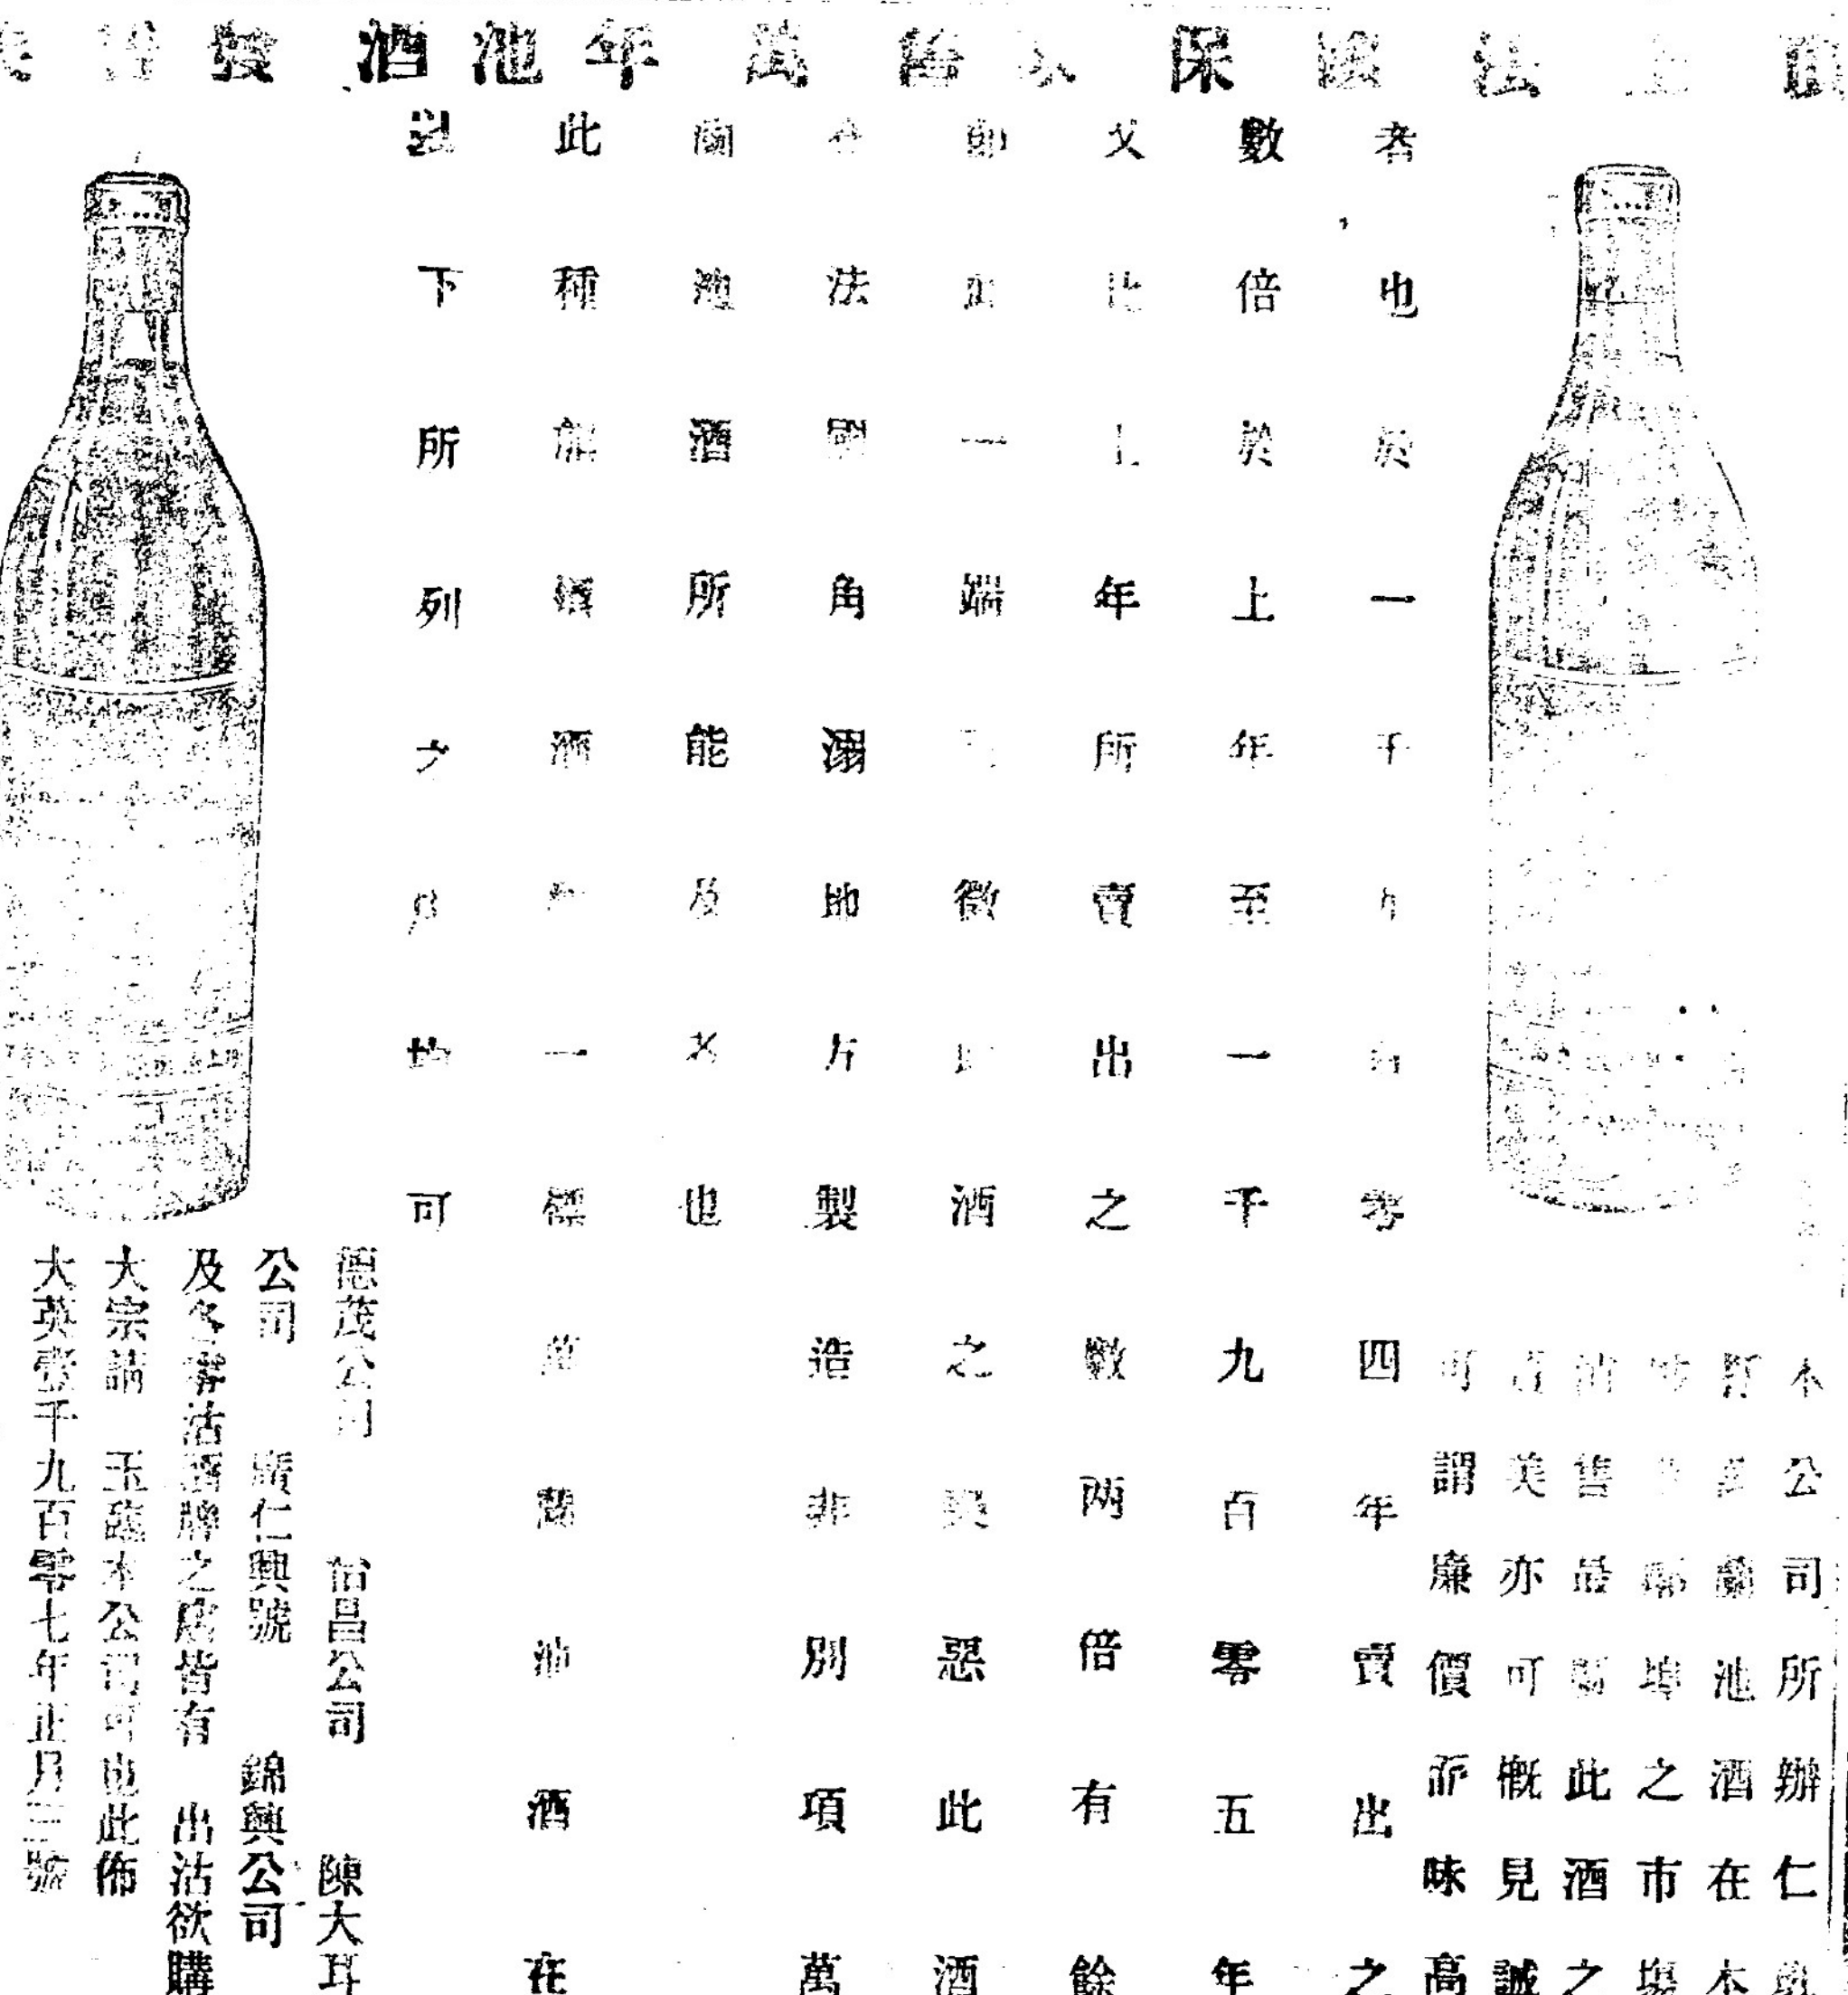 頂上法國保 萬年池酒發售
本公司所辦仁
蘭池酒在本
埠之市塲
沽售最 此酒之
美亦可概見誠
可謂廉價而味高
者也於一千九百零四年賣出之
數倍於上年至一千九百零五年
又比上年所賣出之數兩倍有餘
即此一端 徵 酒之美惡此酒
在法國角溺地方製造非別項萬
蘭池酒所能及者也
此種 酒 一樣萬蘭池酒在
下所列之 均可
德茂公司 怡昌公司 陳大耳
公司 廣仁興號 錦興公司
及各零沽酒牌之店皆有 出沽欲購
大宗請 玉臨本公司可也此佈
大英壹千九百零七年正月三號